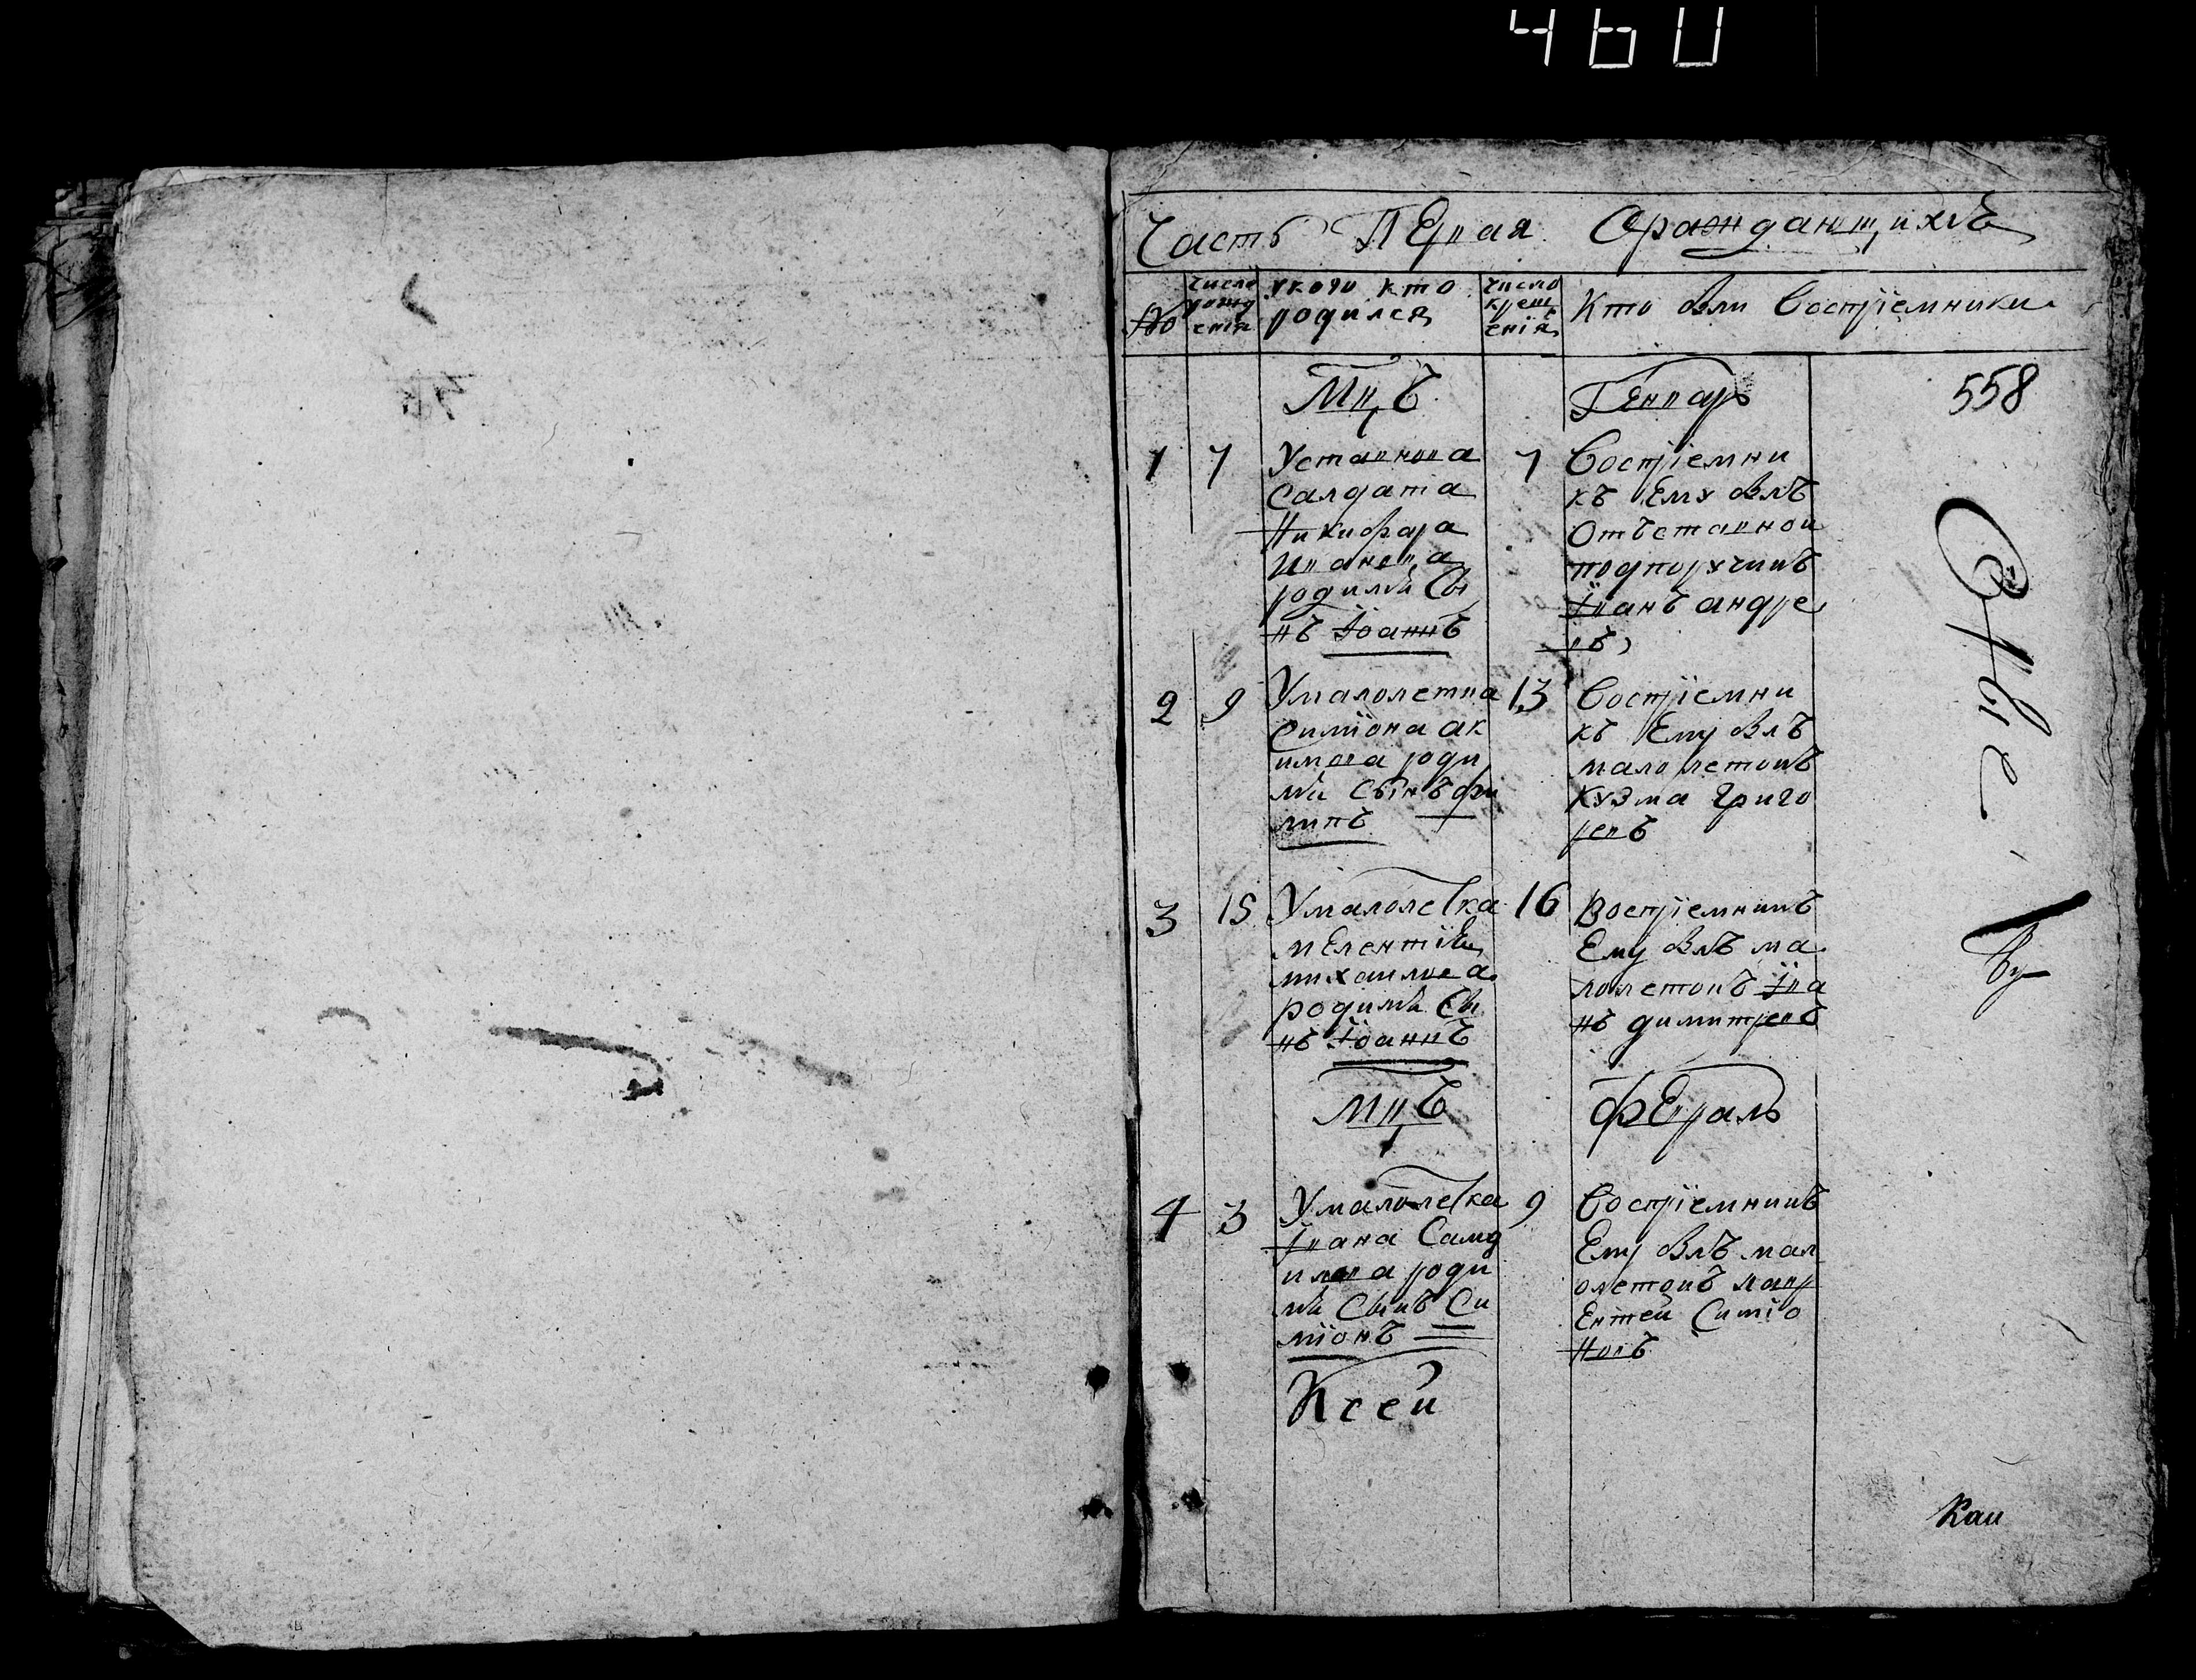 460
Часть Первая Ораждающихъ
№
число рожд ения
у кого кто родился
число крещ ения
Кто был Восприемники
Мцъ
Генварь
558
1
7
У ставнова
Салдата
Никифара
Иванова
родился Сы
нъ Іоаннъ
7
Восприемни
къ Ему был
Отъставной
подпоручикъ
Іванъ андре
въ
2
9
У малолетка
Симіона ак
имова роди
лся Сынъ фи
липъ
13
Восприемни
къ Ему былъ
малолетокъ
кузма григо
ревъ
3
15
У малолетка
мелентія
михаилова
родился Сы
нъ Іоаннъ
16
Восприемникъ
Ему былъ ма
лолетокъ Іва
нъ димитревъ
Мцъ
феврал
4
3
У малолетка
Івана Самд
илова роди
лся Сынъ Си
міонъ
9
Восприемникъ
Ему былъ мал
олетокъ лавр
Ентеи Симіо
новъ
К сей